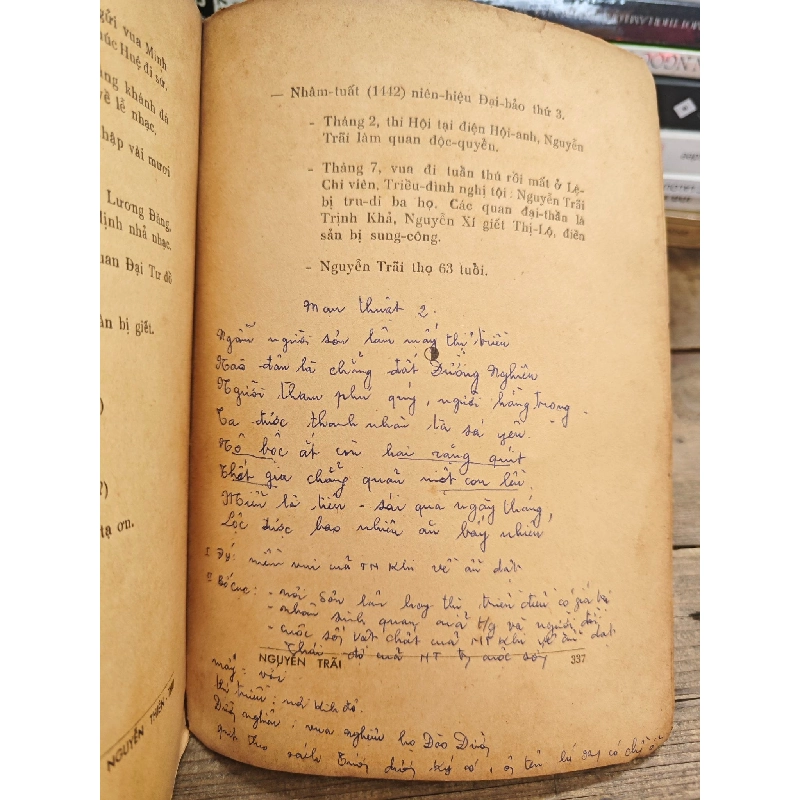 gửi vua Minh
úc Huệ đi sứ.
ng khánh đá
về lễ nhạc.
hập vài mươi
Lương Đăng,
định nhã nhạc.
uan Đại Tư đồ
An bị giết.
tạ ơn.
NGUYỄN THIÊN
— Nhâm-tuất (1442) niên-hiệu Đại-bảo thứ 3.
- Tháng 2, thi Hội tại điện Hội-anh, Nguyễn
Trãi làm quan độc-quyển.
- Tháng 7, vua đi tuần thú rồi mất ở Lệ-
Chi viên. Triều-đình nghị tội : Nguyễn Trãi
bị tru-di ba họ. Các quan đại-thần là
Trịnh Khả, Nguyễn Xí giết Thị-Lộ, điền
sản bị sung-công.
- Nguyễn Trãi thọ 63 tuổi.
Man thuật 2.
Ngẫm người sơn lâm mấy thị triều
Nào đâu là chẳng đất Đường Nghiêu
Người tham phú quý, người hằng trọng
Ta được thanh nhàn ta sá yêu.
Nô bộc ắt còn hai rặng quít
Thất gia chẳng quản một con lều
Miễn là tiêu - sái qua ngày tháng,
Lộc được bao nhiêu ăn bấy nhiêu
I Đý: niềm vui của NT khi về ẩn dật
II Bố cục: - nơi sơn lâm hay thị triều đều có giá trị
- nhân sinh quan của t/g và người đời
- cuộc sống vật chất của NT khi về ẩn dật
Thái độ của NT cuộc sống
NGUYỄN TRÃI 337
mấy - với
thị triều : nơi kinh đô.
Đường nghiêu : vua nghiêu họ Đào Đường